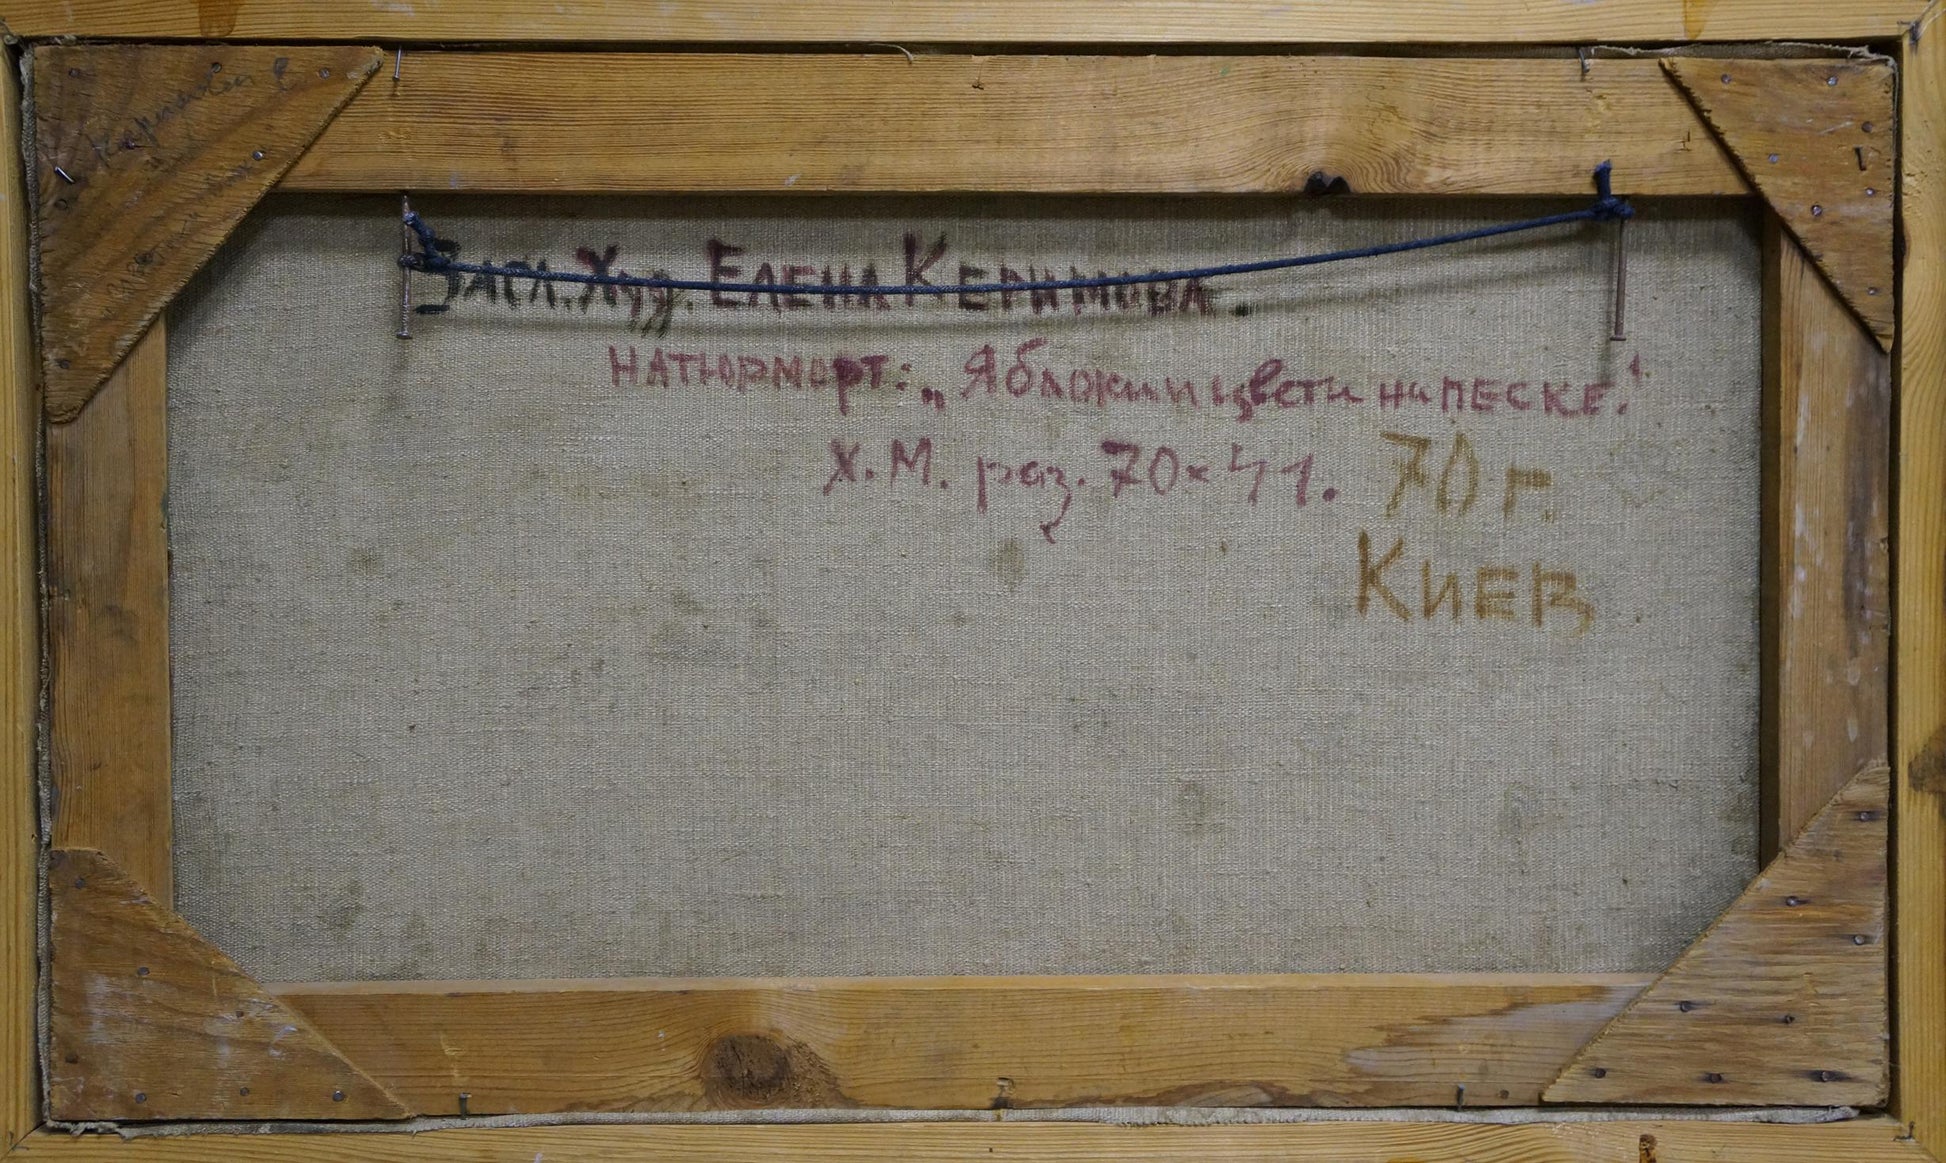 Засл. Худ. Елена Керимова.
натюрморт: „Яблоки и цвети на песке."
Х.М. раз. 70×41. 70 г.
Киев